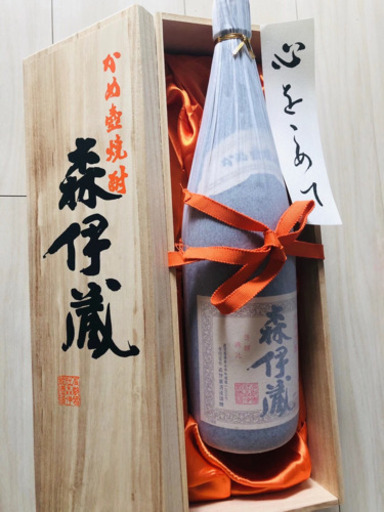 かめ壺焼酎
森伊蔵
心をこめて
かめ壺
森伊蔵